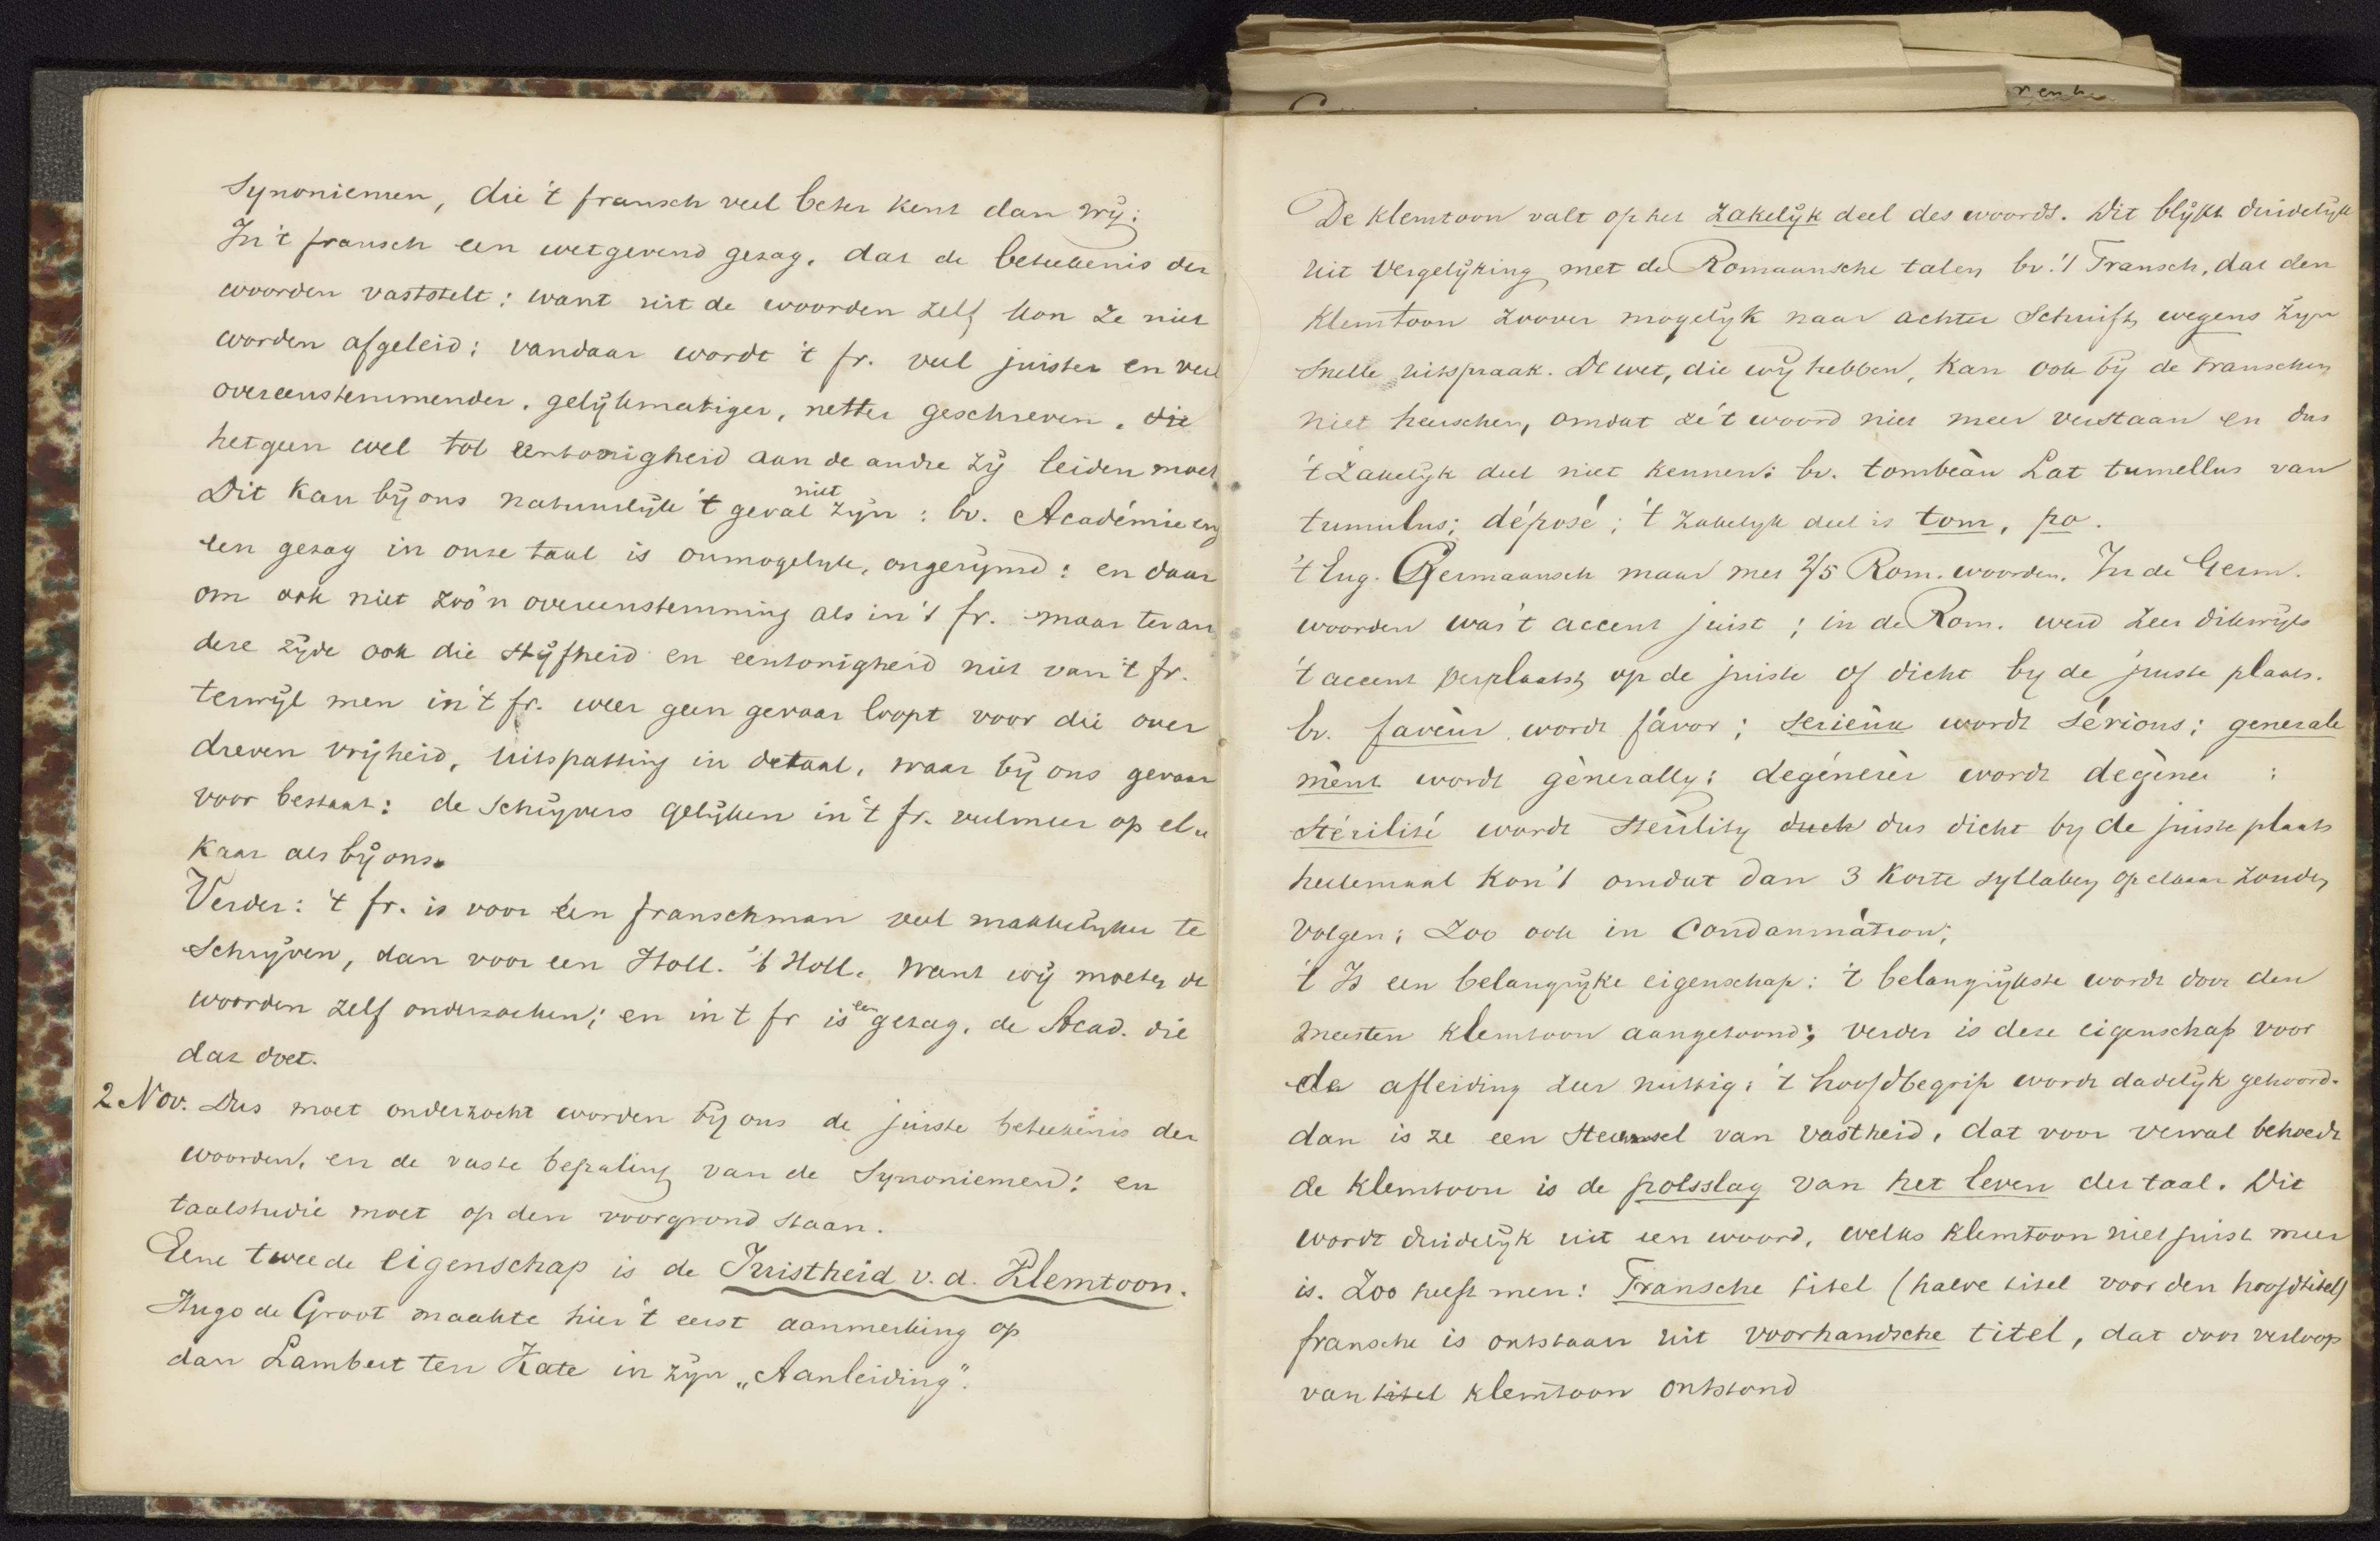 Synoniemen, die 't fransch veel beter kent dan wij:
In 't fransch een wetgevend gezag, dat de beteekenis der
woorden vaststelt; want uit de woorden zelf kon ze niet
worden afgeleid; vandaar wordt 't fr. veel juister en veel
overeenstemmender, gelijkmatiger, netter geschreven, die
hetgeen wel tot eentonigheid aan de andre zij leiden moet
Dit kan bij ons natuurlijk 't geval niet zijn: bv. Académie en
een gezag in onze taal is onmogelijk, ongerijmd: en daar
om ook niet zoo'n overeenstemming als in 't fr. maar ter an
dere zijde ook die stijfheid en eentonigheid niet van 't fr.
terwijl men in 't fr. weer geen gevaar loopt voor die over
dreven vrijheid, uitspatting in de taal, waar bij ons gevaar
voor bestaat: de schrijvers gelijken in 't fr. veelmeer op el
kaar als bij ons.
Verder: 't fr. is voor een franschman veel makkelijker te
schrijven, dan voor een Holl. 't Holl. want wij moeten de
woorden zelf onderzoeken; en in 't fr is een gezag, de Acad. die
dat doet.
2 Nov. Dus moet onderzocht worden bij ons de juiste beteekenis der
woorden, en de vaste bepaling van de Synoniemen: en
taalstudie moet op den voorgrond staan.
Eene tweede eigenschap is de Juistheid v. d. Klemtoon.
Hugo de Groot maakte hier 't eerst aanmerking op
dan Lambert ten Kate in zijn „Aanleiding".
De klemtoon valt op het zakelijk deel des woords. Dit blijkt duidelijk
uit vergelijking met de Romaansche talen bv. 't Fransch, dat den
klemtoon zoover mogelijk naar achter schuift, wegens zijn
snelle uitspraak. De wet, die wij hebben, kan ook bij de Franschen
niet heerschen, omdat ze 't woord niet meer verstaan en dus
't zakelijk deel niet kennen: bv. tombeàu Lat tumellus van
tumulus; déposé; 't zakelijk deel is tom, po.
't Eng. Germaansch maar met 2/5 Rom. woorden. In de Germ.
woorden was 't accent juist; in de Rom. werd zeer dikwijls
't accent verplaatst, op de juiste of dicht bij de juiste plaats.
bv. faveùr wordt fávor; serieùx wordt sérious; generale
mènt wordt gènerally; degénerèr wordt degèner :
stérilité wordt sterility duck dus dicht bij de juiste plaats
heelemaal kon 't omdat dan 3 korte syllaben op elkaar zouden
volgen; zoo ook in Condammátion;
't Is een belangrijke eigenschap: 't belangrijkste wordt door den
meesten klemtoon aangetoond; verder is deze eigenschap voor
de afleiding zeer nuttig: 't hoofdbegrip wordt dadelijk gehoord.
dan is ze een steunsel van vastheid, dat voor verval behoedt
de klemtoon is de polsslag van het leven der taal. Dit
wordt duidelijk uit een woord, welks klemtoon niet juist meer
is. Zoo heeft men: Fransche titel (halve titel voor den hoofdtitel)
fransche is ontstaan uit voorhandsche titel, dat door verloop
van titel klemtoon ontstond